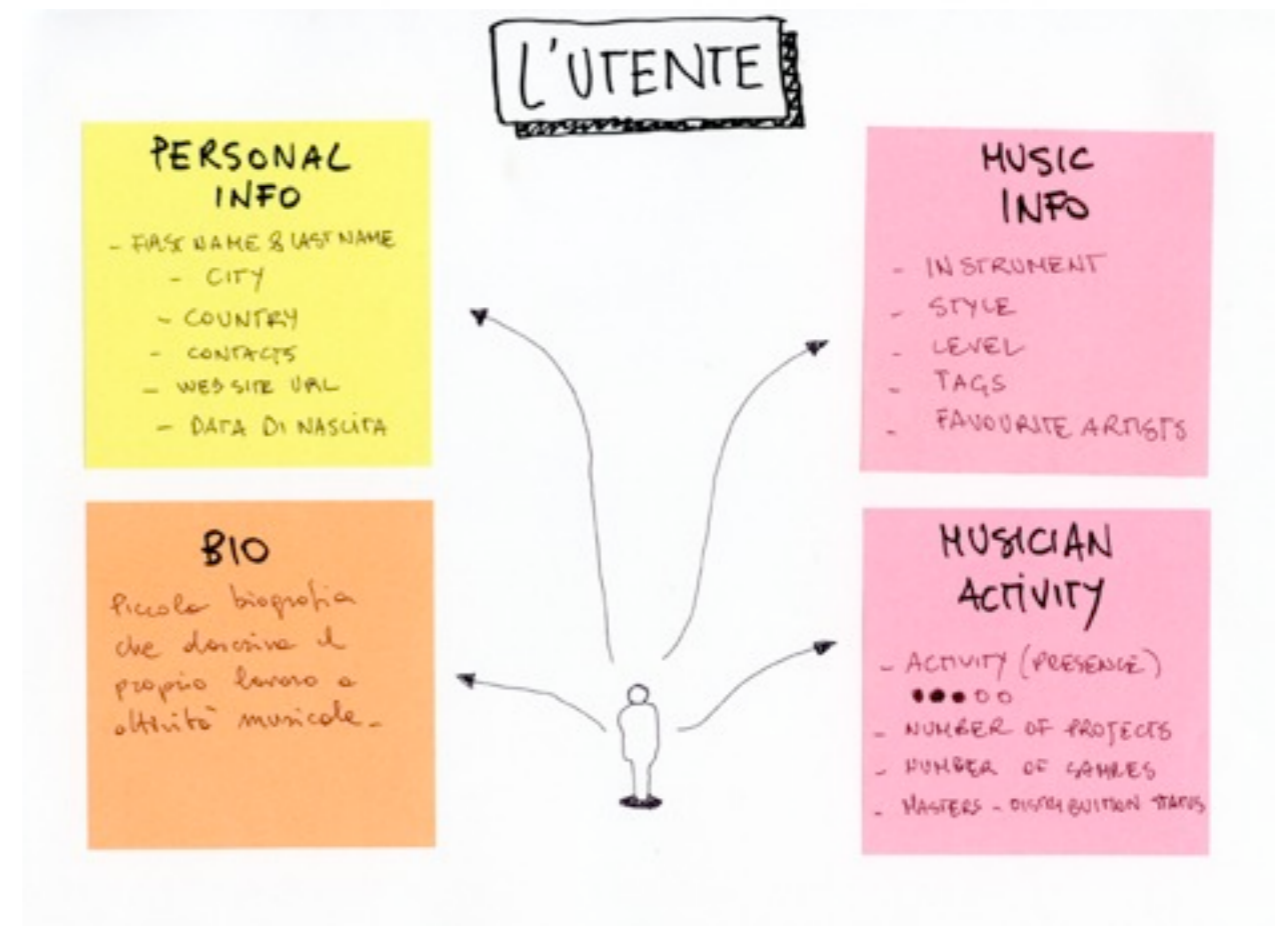 L'UTENTE
PERSONAL
INFO
- FIRST NAME & LAST NAME
- CITY
- COUNTRY
- CONTACTS
- WEB SITE URL
- DATA DI NASCITA
BIO
Piccola biografia
che descriva il
proprio lavoro o
attività musicale.
MUSIC
INFO
- INSTRUMENT
- STYLE
- LEVEL
- TAGS
- FAVOURITE ARTISTS
MUSICIAN
ACTIVITY
- ACTIVITY (PRESENCE)
- NUMBER OF PROJECTS
- NUMBER OF SAMPLES
- MASTERS - DISTRIBUITION STATUS